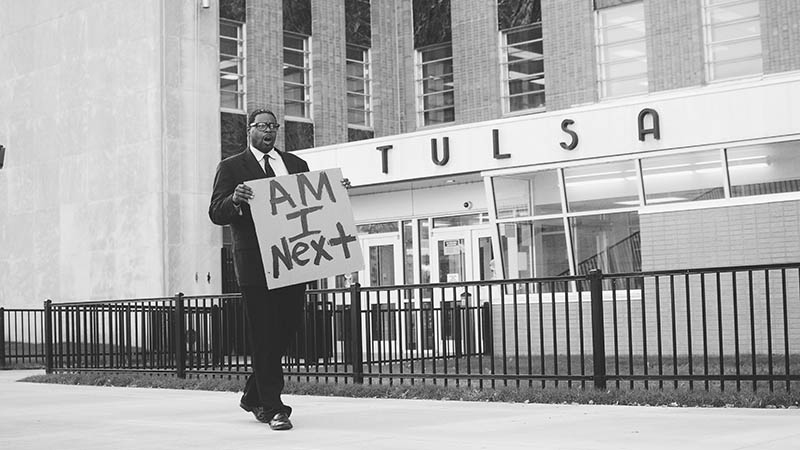 TULSA
AM
I
Next